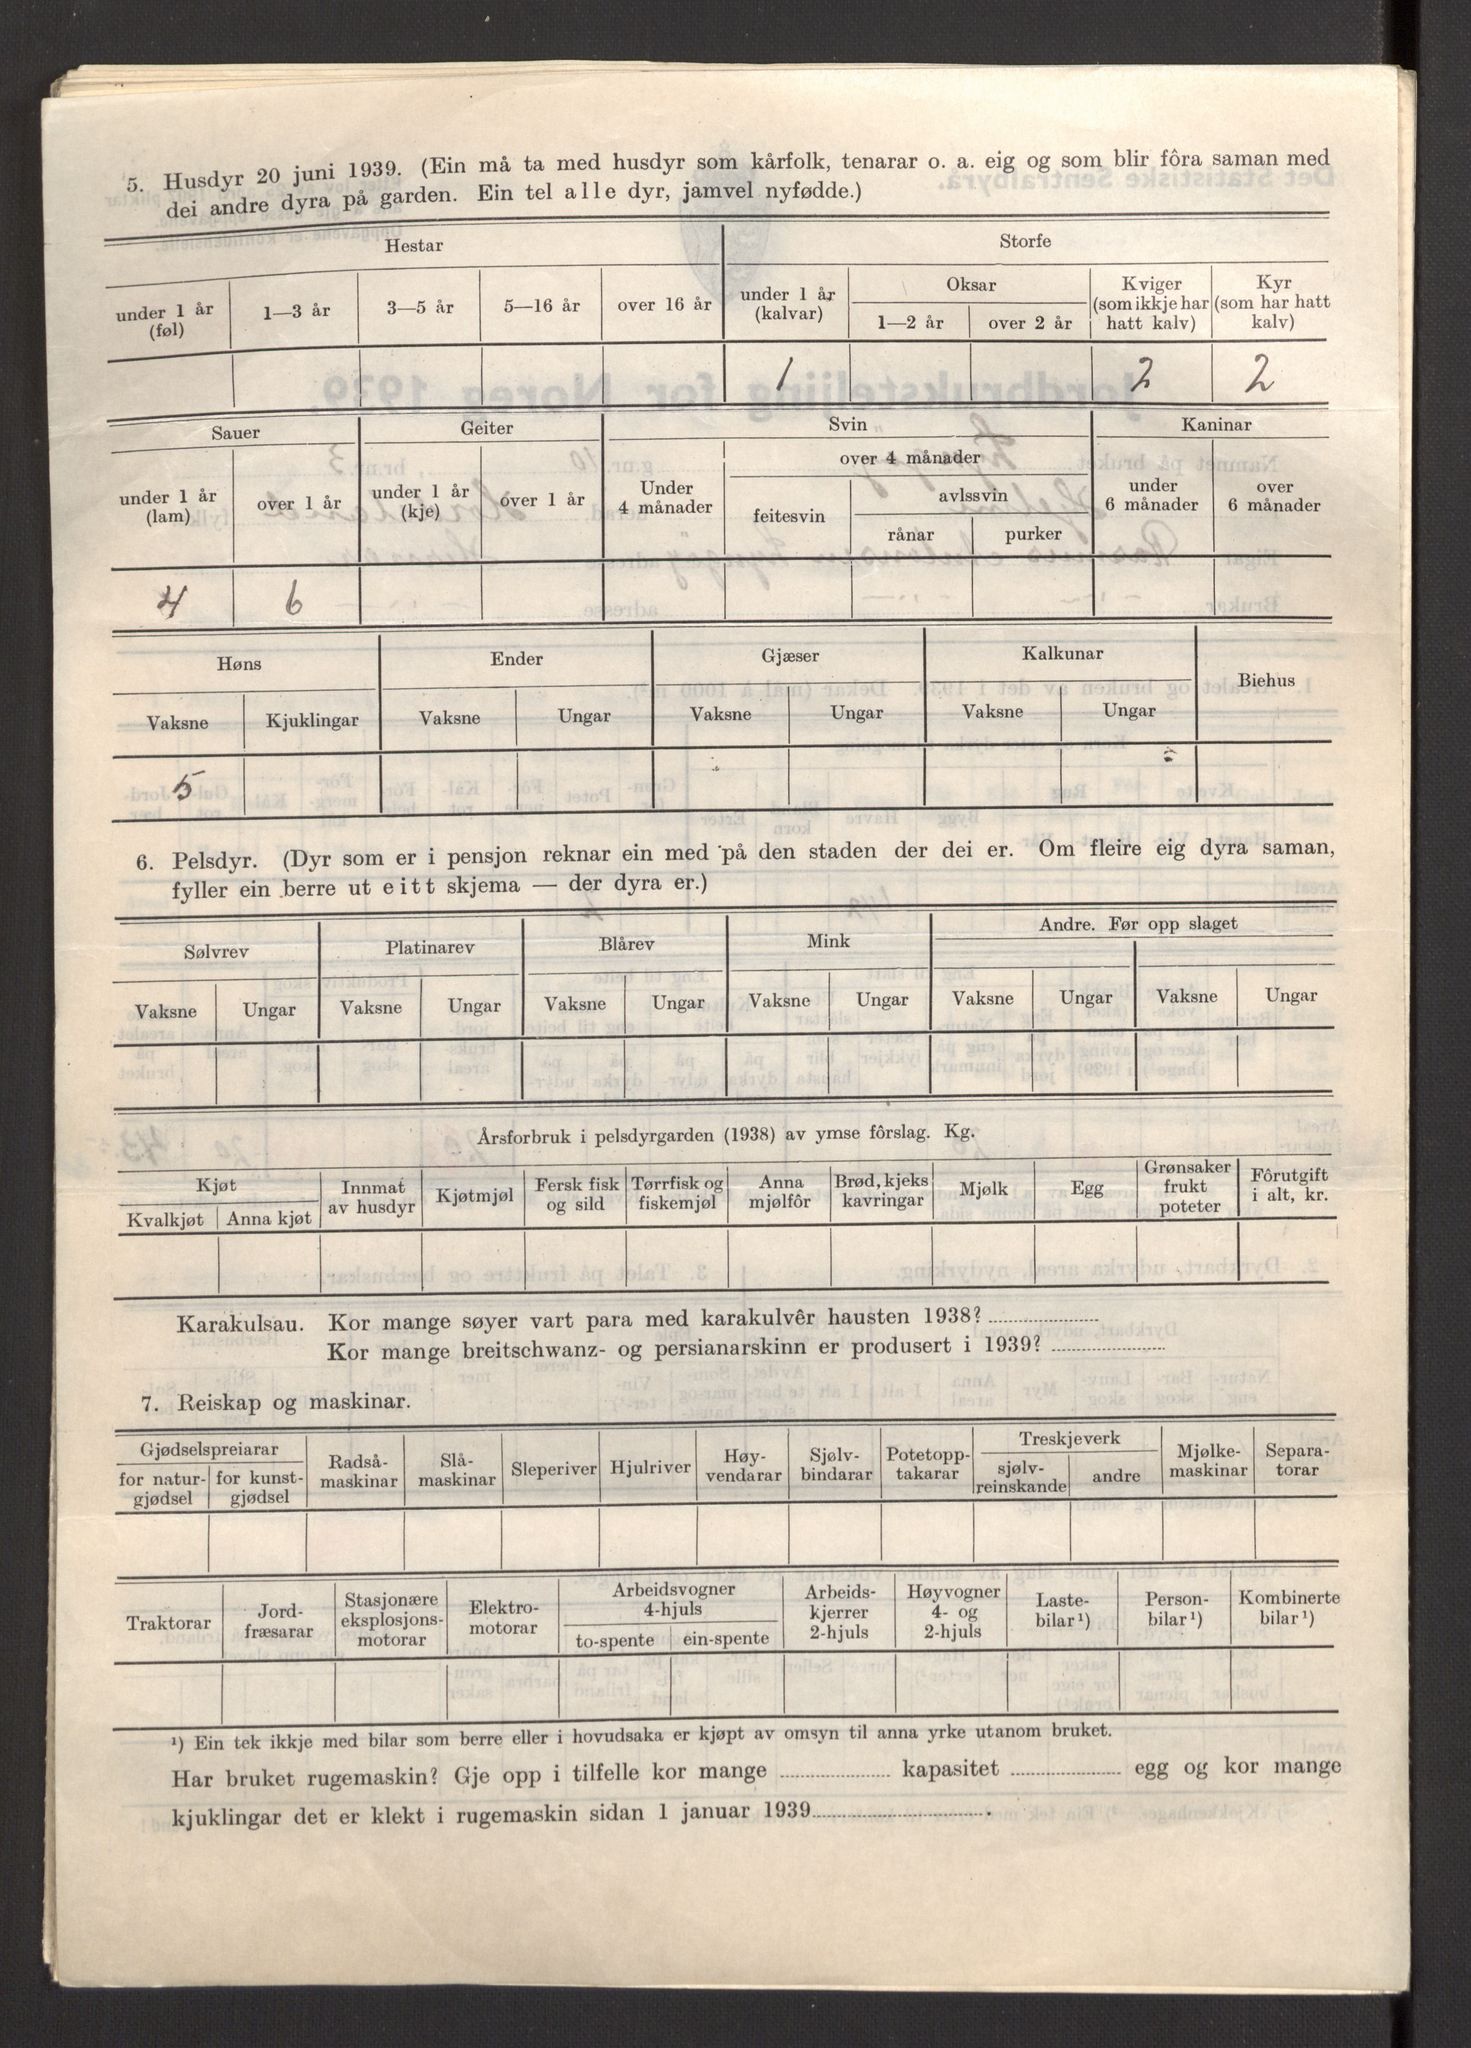 5. Husdyr 20 juni 1939. (Ein må ta med husdyr som kårfolk, tenarar o. a. eig og som blir fôra saman med
dei andre dyra på garden. Ein tel alle dyr, jamvel nyfødde.)
Hestar Storfe
under 1 år (føl) 1—3 år 3—5 år 5—16 år over 16 år under 1 år (kalvar) Oksar 1—2 år over 2 år Kviger (som ikkje har hatt kalv) Kyr (som har hatt kalv)
1 2 2
Sauer Geiter Svin Kaninar
under 1 år (lam) over 1 år under 1 år (kje) over 1 år Under 4 månader over 4 månader feitesvin avlssvin rånar purker under 6 månader over 6 månader
4 6
Høns Ender Gjæser Kalkunar Biehus
Vaksne Kjuklingar Vaksne Ungar Vaksne Ungar Vaksne Ungar
5
6. Pelsdyr. (Dyr som er i pensjon reknar ein med på den staden der dei er. Om fleire eig dyra saman,
fyller ein berre ut eitt skjema — der dyra er.)
Sølvrev Platinarev Blårev Mink Andre. Før opp slaget
Vaksne Ungar Vaksne Ungar Vaksne Ungar Vaksne Ungar Vaksne Ungar Vaksne Ungar
Årsforbruk i pelsdyrgarden (1938) av ymse fôrslag. Kg.
Kjøt Kvalkjøt Anna kjøt Innmat av husdyr Kjøtmjøl Fersk fisk og sild Tørrfisk og fiskemjøl Anna mjølfôr Brød, kjeks kavringar Mjølk Egg Grønsaker frukt poteter Fôrutgift i alt, kr.
Karakulsau. Kor mange søyer vart para med karakulvêr hausten 1938?
Kor mange breitschwanz- og persianarskinn er produsert i 1939?
7. Reiskap og maskinar.
Gjødselspreiarar for natur-gjødsel for kunst-gjødsel Radså-maskinar Slå-maskinar Sleperiver Hjulriver Høy-vendarar Sjølv-bindarar Potetopp-takarar Treskjeverk sjølv-reinskande andre Mjølke-maskinar Separa-torar
Traktorar Jord-fræsarar Stasjonære eksplosjons-motorar Elektro-motorar Arbeidsvogner 4-hjuls to-spente ein-spente Arbeids-kjerrer 2-hjuls Høyvogner 4- og 2-hjuls Laste-bilar ¹) Person-bilar ¹) Kombinerte bilar ¹)
¹) Ein tek ikkje med bilar som berre eller i hovudsaka er kjøpt av omsyn til anna yrke utanom bruket.
Har bruket rugemaskin? Gje opp i tilfelle kor mange kapasitet egg og kor mange
kjuklingar det er klekt i rugemaskin sidan 1 januar 1939